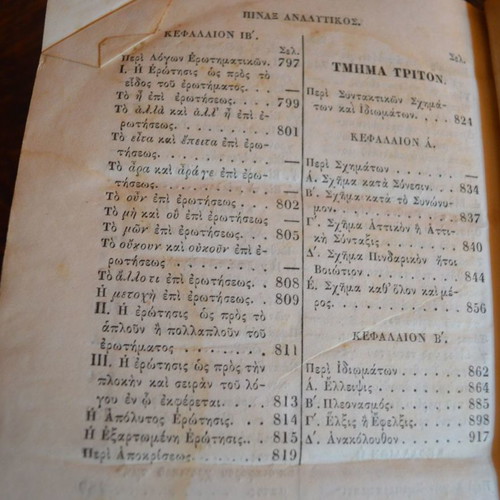 ΠΙΝΑΞ ΑΝΑΛΥΤΙΚΟΣ.
ΚΕΦΑΛΑΙΟΝ ΙΒ΄.
Σελ.
Περὶ Λόγων Ἐρωτηματικῶν. 797
Ι. Ἡ Ἐρώτησις ὡς πρὸς τὸ
εἶδος τοῦ ἐρωτήματος. . . —
Τὸ ἢ ἐπὶ ἐρωτήσεως. . . . 799
Τὸ ἀλλὰ καὶ ἀλλ' ἢ ἐπὶ ἐ-
ρωτήσεως. . . . . . . . . 801
Τὸ εἶτα καὶ ἔπειτα ἐπὶ ἐρω-
τήσεως. . . . . . . . . . —
Τὸ ἆρα καὶ ἆράγε ἐπὶ ἐρω-
τήσεως. . . . . . . . . . —
Τὸ οὖν ἐπὶ ἐρωτήσεως . . 802
Τὸ μὴ καὶ οὐ ἐπὶ ἐρωτήσεως —
Τὸ μῶν ἐπὶ ἐρωτήσεως. . . 805
Τὸ οὔκουν καὶ οὐκοῦν ἐπὶ ἐ-
ρωτήσεως . . . . . . . . —
Τὸ ἄλλοτι ἐπὶ ἐρωτήσεως. . 808
Ἡ μετοχὴ ἐπὶ ἐρωτήσεως. . 809
ΙΙ. Ἡ ἐρώτησις ὡς πρὸς τὸ
ἁπλοῦν ἢ πολλαπλοῦν τοῦ
ἐρωτήματος . . . . . . . 811
ΙΙΙ. Ἡ ἐρώτησις ὡς πρὸς τὴν
πλοκὴν καὶ σειρὰν τοῦ λό-
γου ἐν ᾧ ἐκφέρεται. . . . 813
Ἡ Ἀπόλυτος Ἐρώτησις. . . 814
Ἡ Ἐξαρτωμένη Ἐρώτησις. . 815
Περὶ Ἀποκρίσεως. . . . . . 819
Σελ.
ΤΜΗΜΑ ΤΡΙΤΟΝ.
Περὶ Συντακτικῶν Σχημά-
των καὶ Ἰδιωμάτων. . . . 824
ΚΕΦΑΛΑΙΟΝ Α΄.
Περὶ Σχημάτων . . . . . . —
Α΄. Σχῆμα κατὰ Σύνεσιν. . . 834
Β΄. Σχῆμα κατὰ τὸ Συνώνυ-
μον. . . . . . . . . . . . 837
Γ΄. Σχῆμα Ἀττικὸν ἢ Ἀττι-
κὴ Σύνταξις . . . . . . . 840
Δ΄. Σχῆμα Πινδαρικὸν ἤτοι
Βοιώτιον . . . . . . . . . 844
Ε΄. Σχῆμα καθ' ὅλον καὶ μέ-
ρος. . . . . . . . . . . . 856
ΚΕΦΑΛΑΙΟΝ Β΄.
Περὶ Ἰδιωμάτων . . . . . . 862
Α΄. Ἔλλειψις . . . . . . . . 864
Β΄. Πλεονασμός. . . . . . . 885
Γ΄. Ἕλξις ἢ Ἔφελξις. . . . . 898
Δ΄. Ἀνακόλουθον. . . . . . . 917